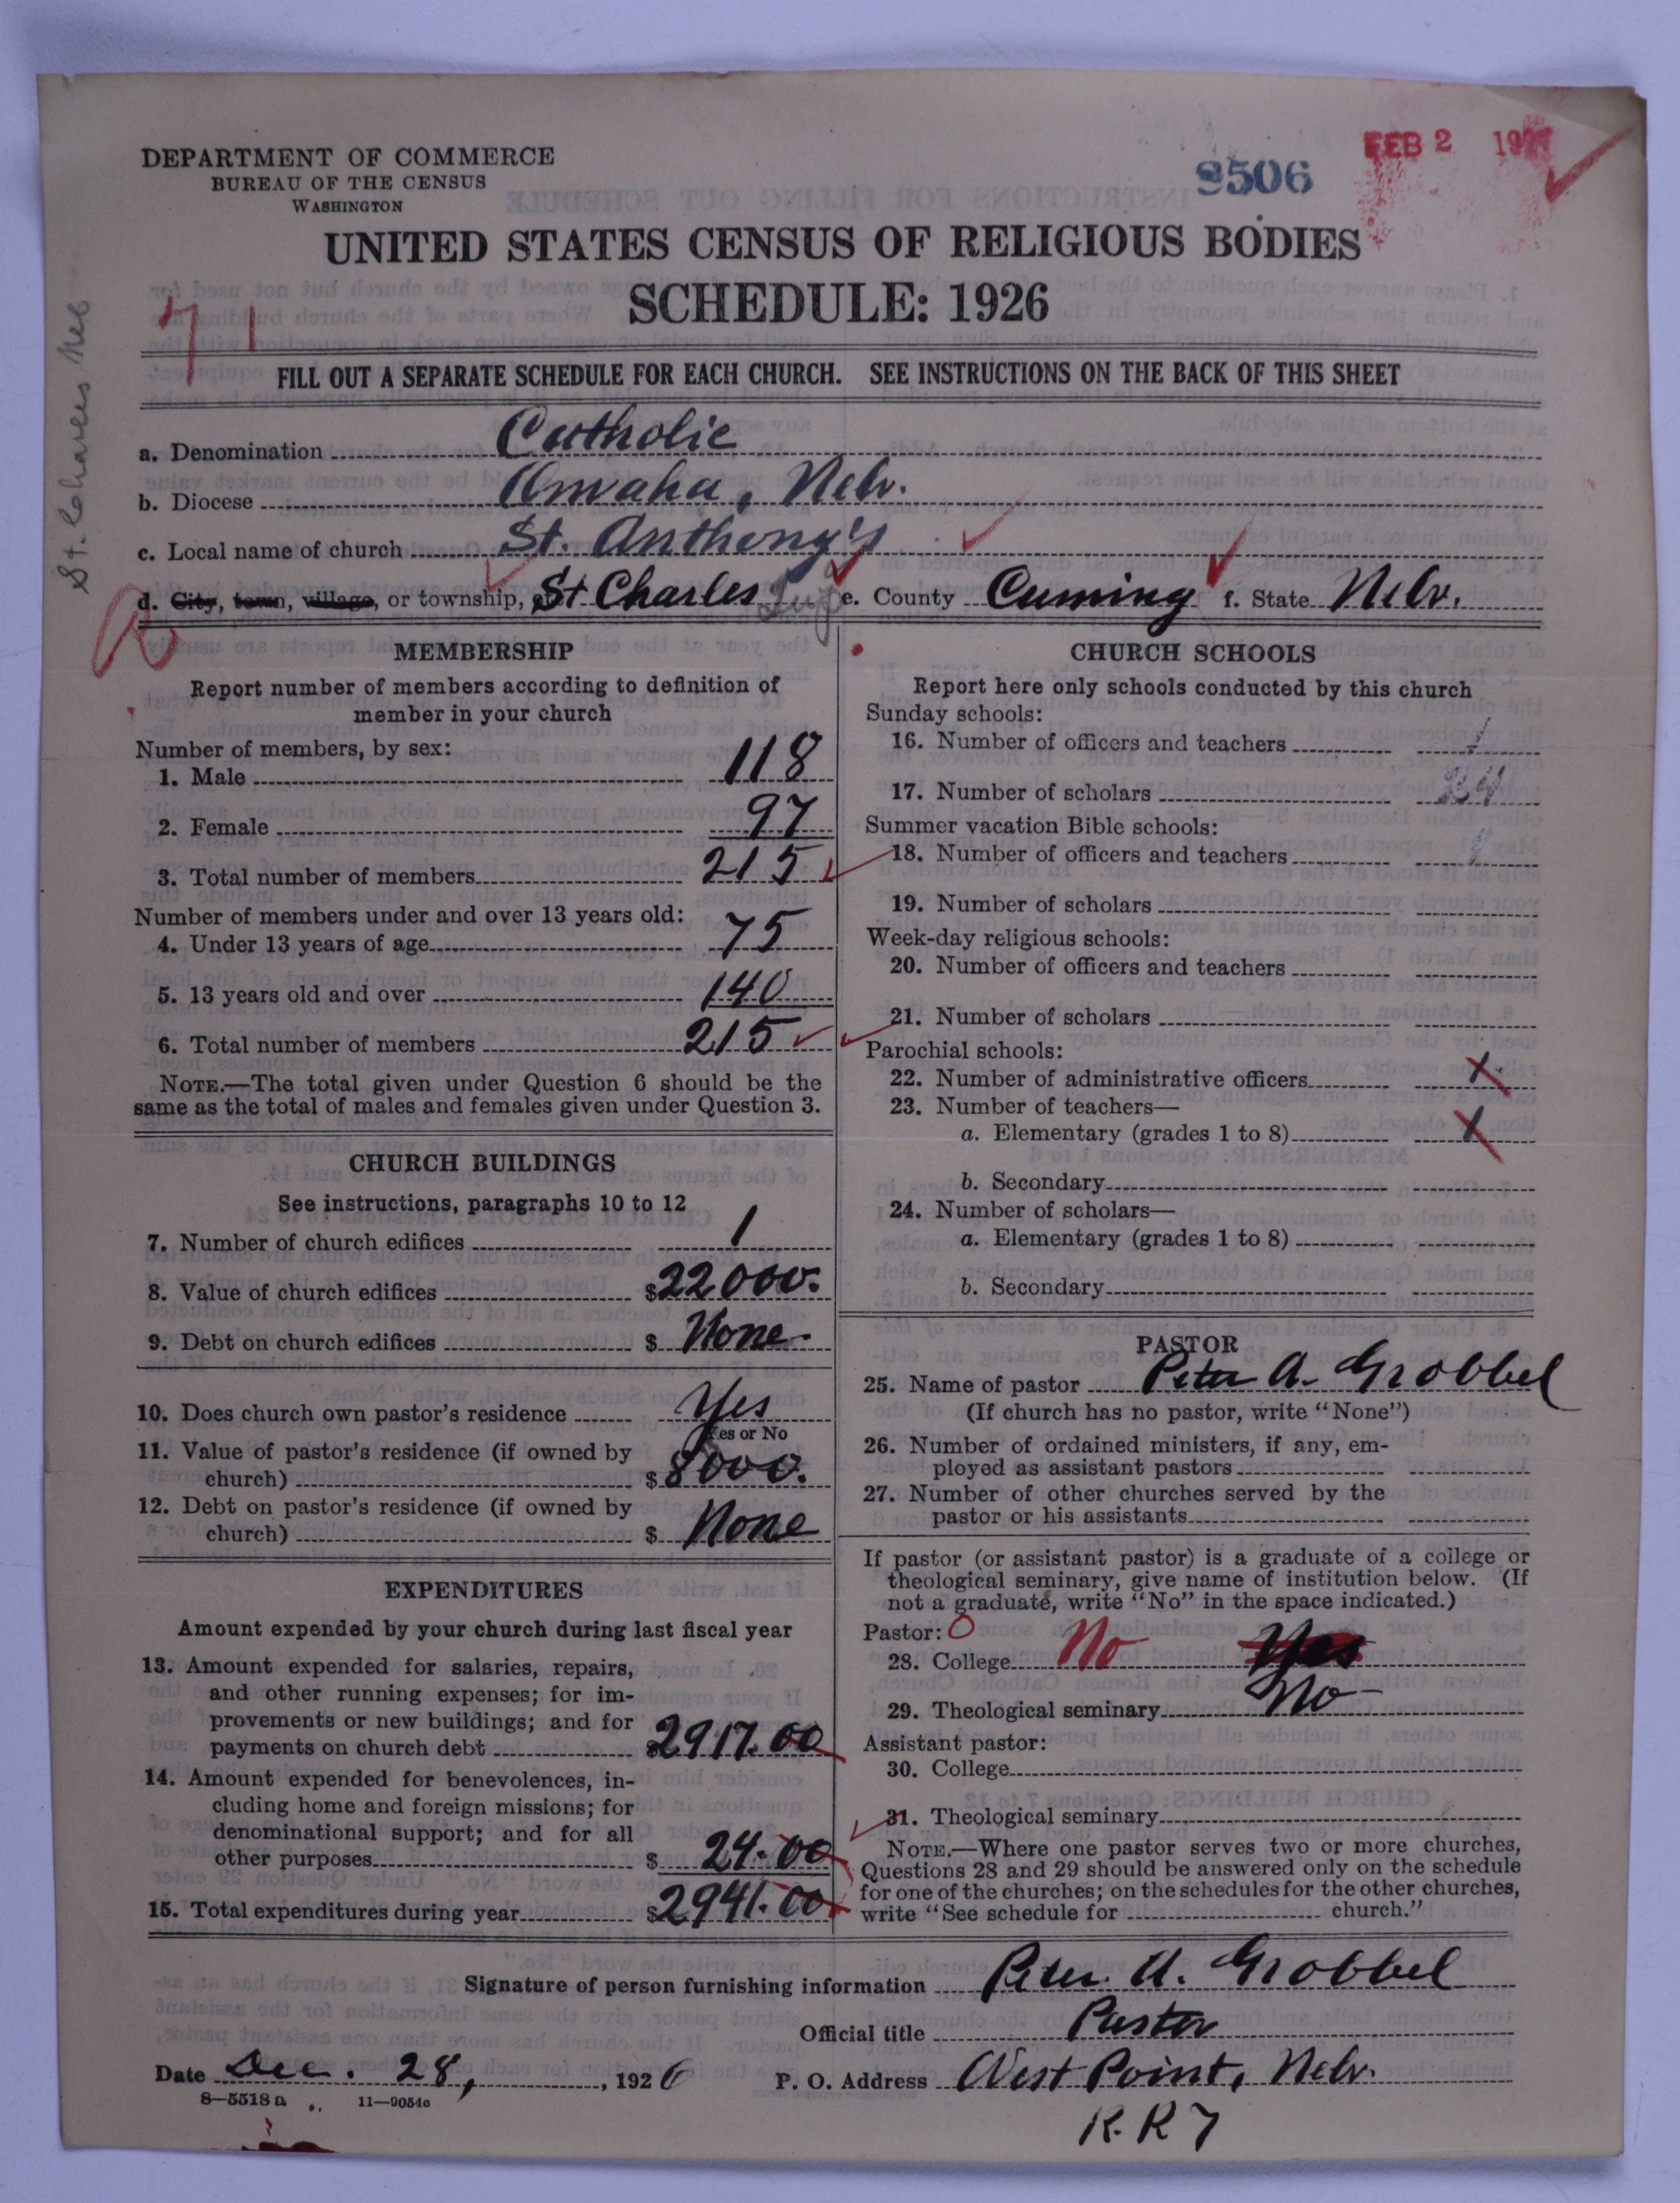 FEB 2 192
8506
DEPARTMENT OF COMMERCE
BUREAU OF THE CENSUS
WASHINGTON
UNITED STATES CENSUS OF RELIGIOUS BODIES
SCHEDULE: 1926
71
St. Charles Neb
FILL OUT A SEPARATE SCHEDULE FOR EACH CHURCH. SEE INSTRUCTIONS ON THE BACK OF THIS SHEET
a. Denomination Catholic
b. Diocese Omaha, Nebr.
c. Local name of church St. Anthony's
d. City, town, village, or township, St Charles e. County Cuming f. State Nebr.
MEMBERSHIP
Report number of members according to definition of
member in your church
Number of members, by sex:
1. Male 118
2. Female 97
3. Total number of members 215
Number of members under and over 13 years old:
4. Under 13 years of age 75
5. 13 years old and over 140
6. Total number of members 215
NOTE.—The total given under Question 6 should be the
same as the total of males and females given under Question 3.
CHURCH BUILDINGS
See instructions, paragraphs 10 to 12
7. Number of church edifices 1
8. Value of church edifices $22000.
9. Debt on church edifices $ None.
10. Does church own pastor's residence Yes
Yes or No
11. Value of pastor's residence (if owned by
church) $8000.
12. Debt on pastor's residence (if owned by
church) $ None
EXPENDITURES
Amount expended by your church during last fiscal year
13. Amount expended for salaries, repairs,
and other running expenses; for im-
provements or new buildings; and for
payments on church debt $2917.00
14. Amount expended for benevolences, in-
cluding home and foreign missions; for
denominational support; and for all
other purposes $ 24.00
15. Total expenditures during year $2941.00
CHURCH SCHOOLS
Report here only schools conducted by this church
Sunday schools:
16. Number of officers and teachers 1
17. Number of scholars 24
Summer vacation Bible schools:
18. Number of officers and teachers
19. Number of scholars
Week-day religious schools:
20. Number of officers and teachers
21. Number of scholars
Parochial schools:
22. Number of administrative officers
23. Number of teachers—
a. Elementary (grades 1 to 8)
b. Secondary
24. Number of scholars—
a. Elementary (grades 1 to 8)
b. Secondary
PASTOR
25. Name of pastor Peter A. Grobbel
(If church has no pastor, write "None")
26. Number of ordained ministers, if any, em-
ployed as assistant pastors
27. Number of other churches served by the
pastor or his assistants
If pastor (or assistant pastor) is a graduate of a college or
theological seminary, give name of institution below. (If
not a graduate, write "No" in the space indicated.)
Pastor: 0
28. College No Yes
29. Theological seminary No
Assistant pastor:
30. College
31. Theological seminary
NOTE.—Where one pastor serves two or more churches,
Questions 28 and 29 should be answered only on the schedule
for one of the churches; on the schedules for the other churches,
write "See schedule for church."
Signature of person furnishing information Peter A. Grobbel
Official title Pastor
Date Dec. 28, , 1926 P. O. Address West Point, Nebr.
R. R 7
8—5518a 11—9054c